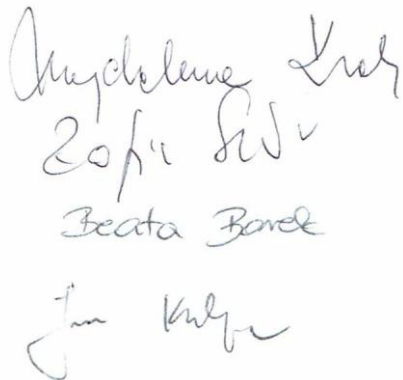 Magdalena Król
Zofia
Beata Borek
Jan